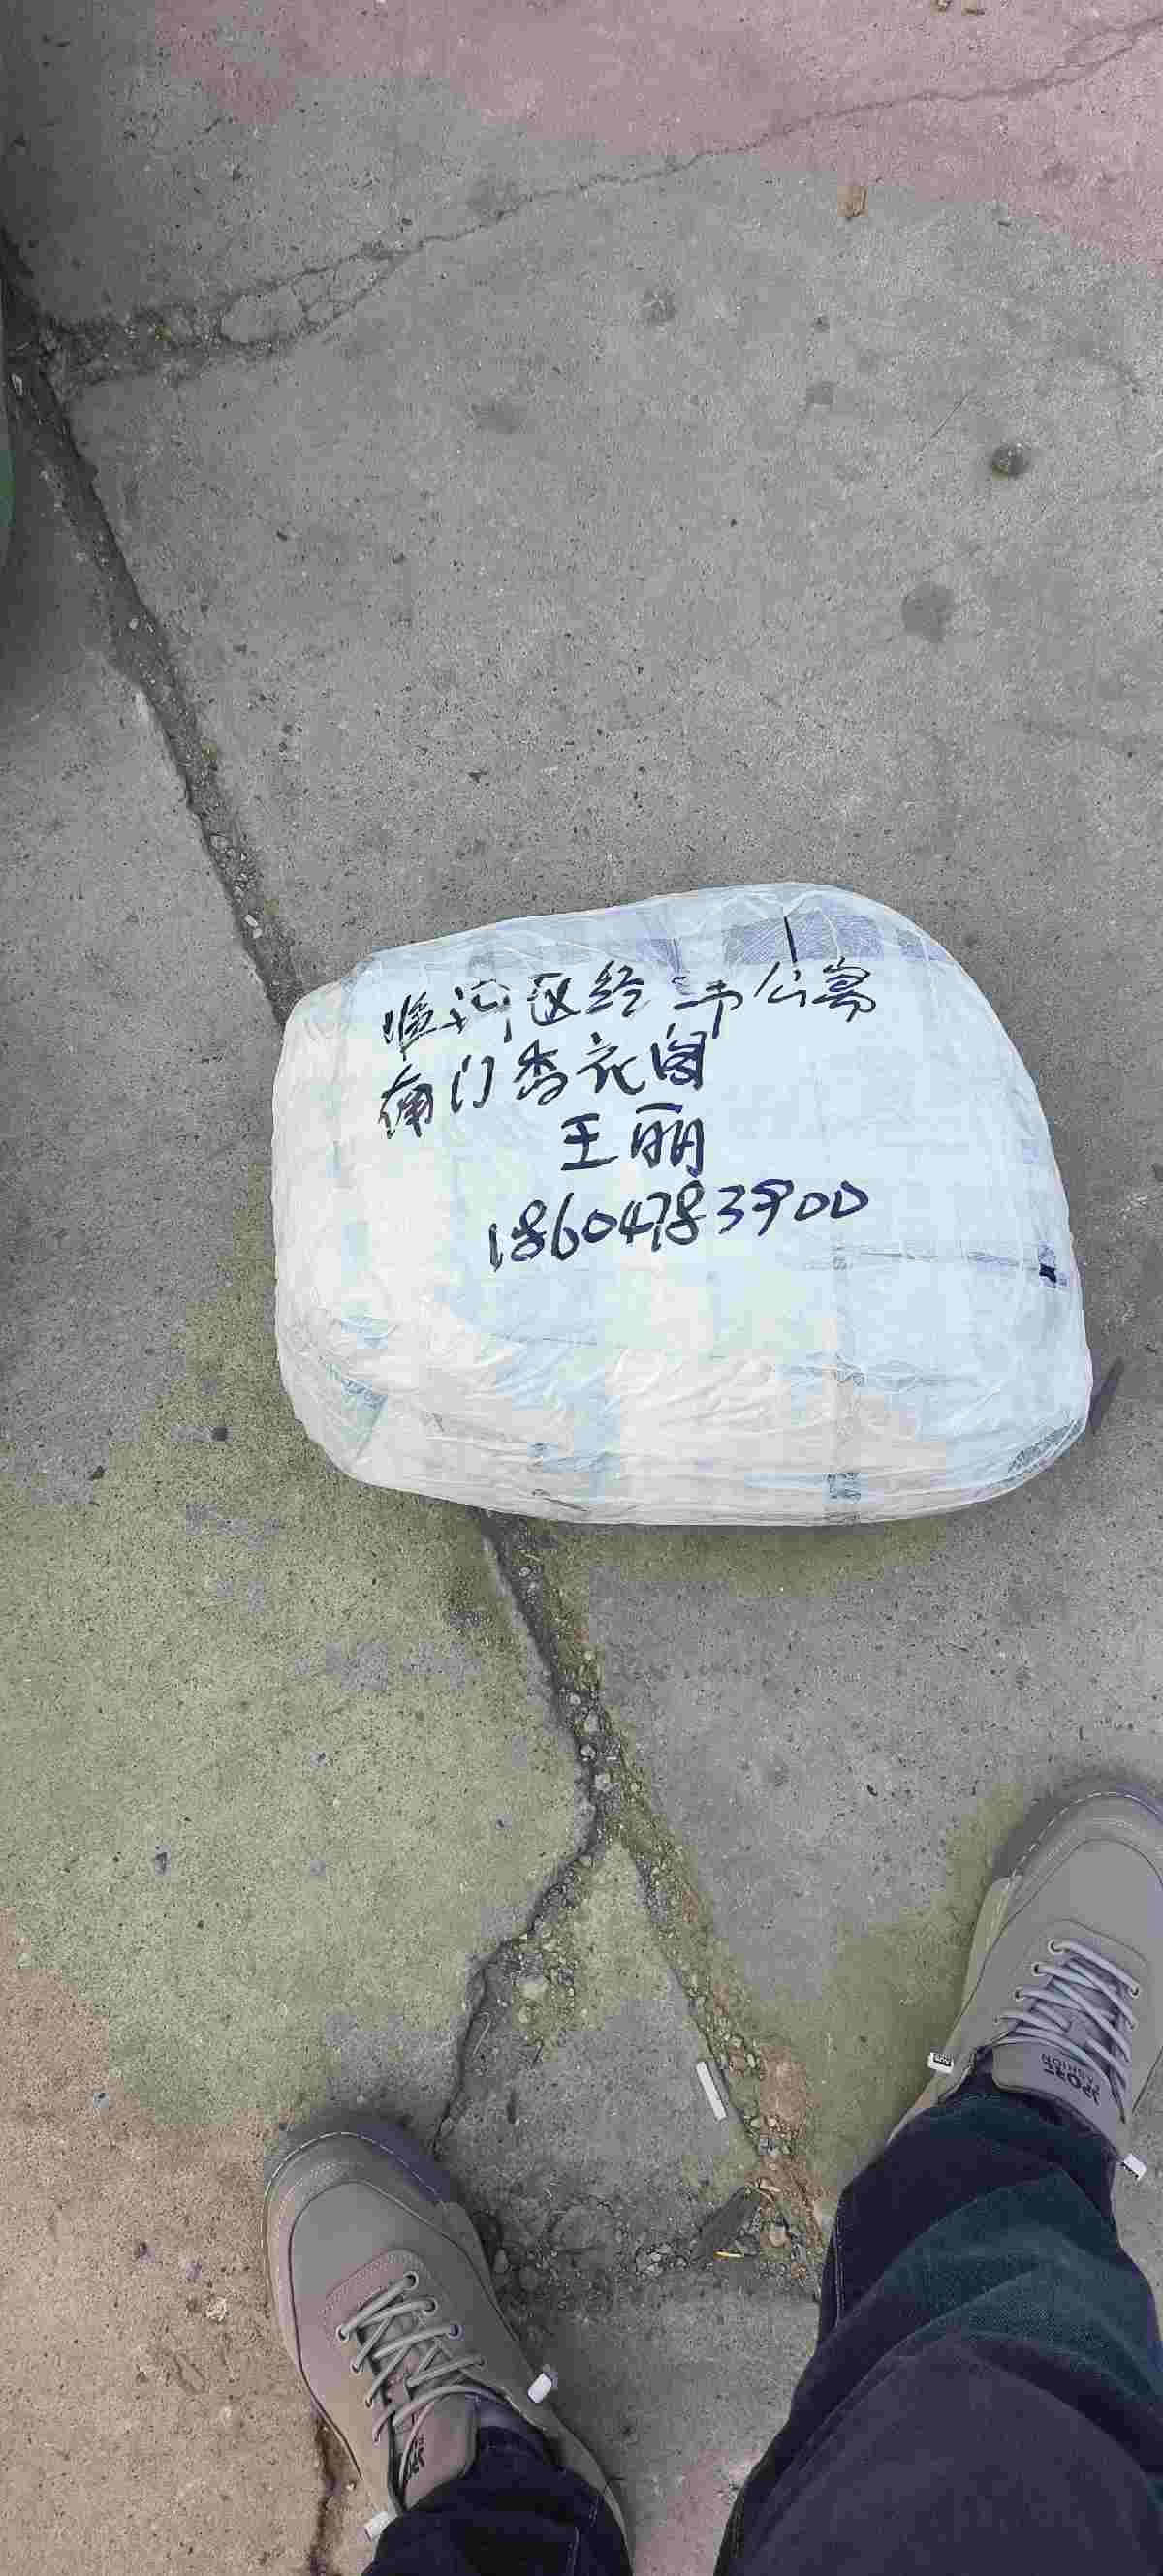 临河区经三韦公寓
南门香衣阁
王丽
18604783900
SPORT
FASHION